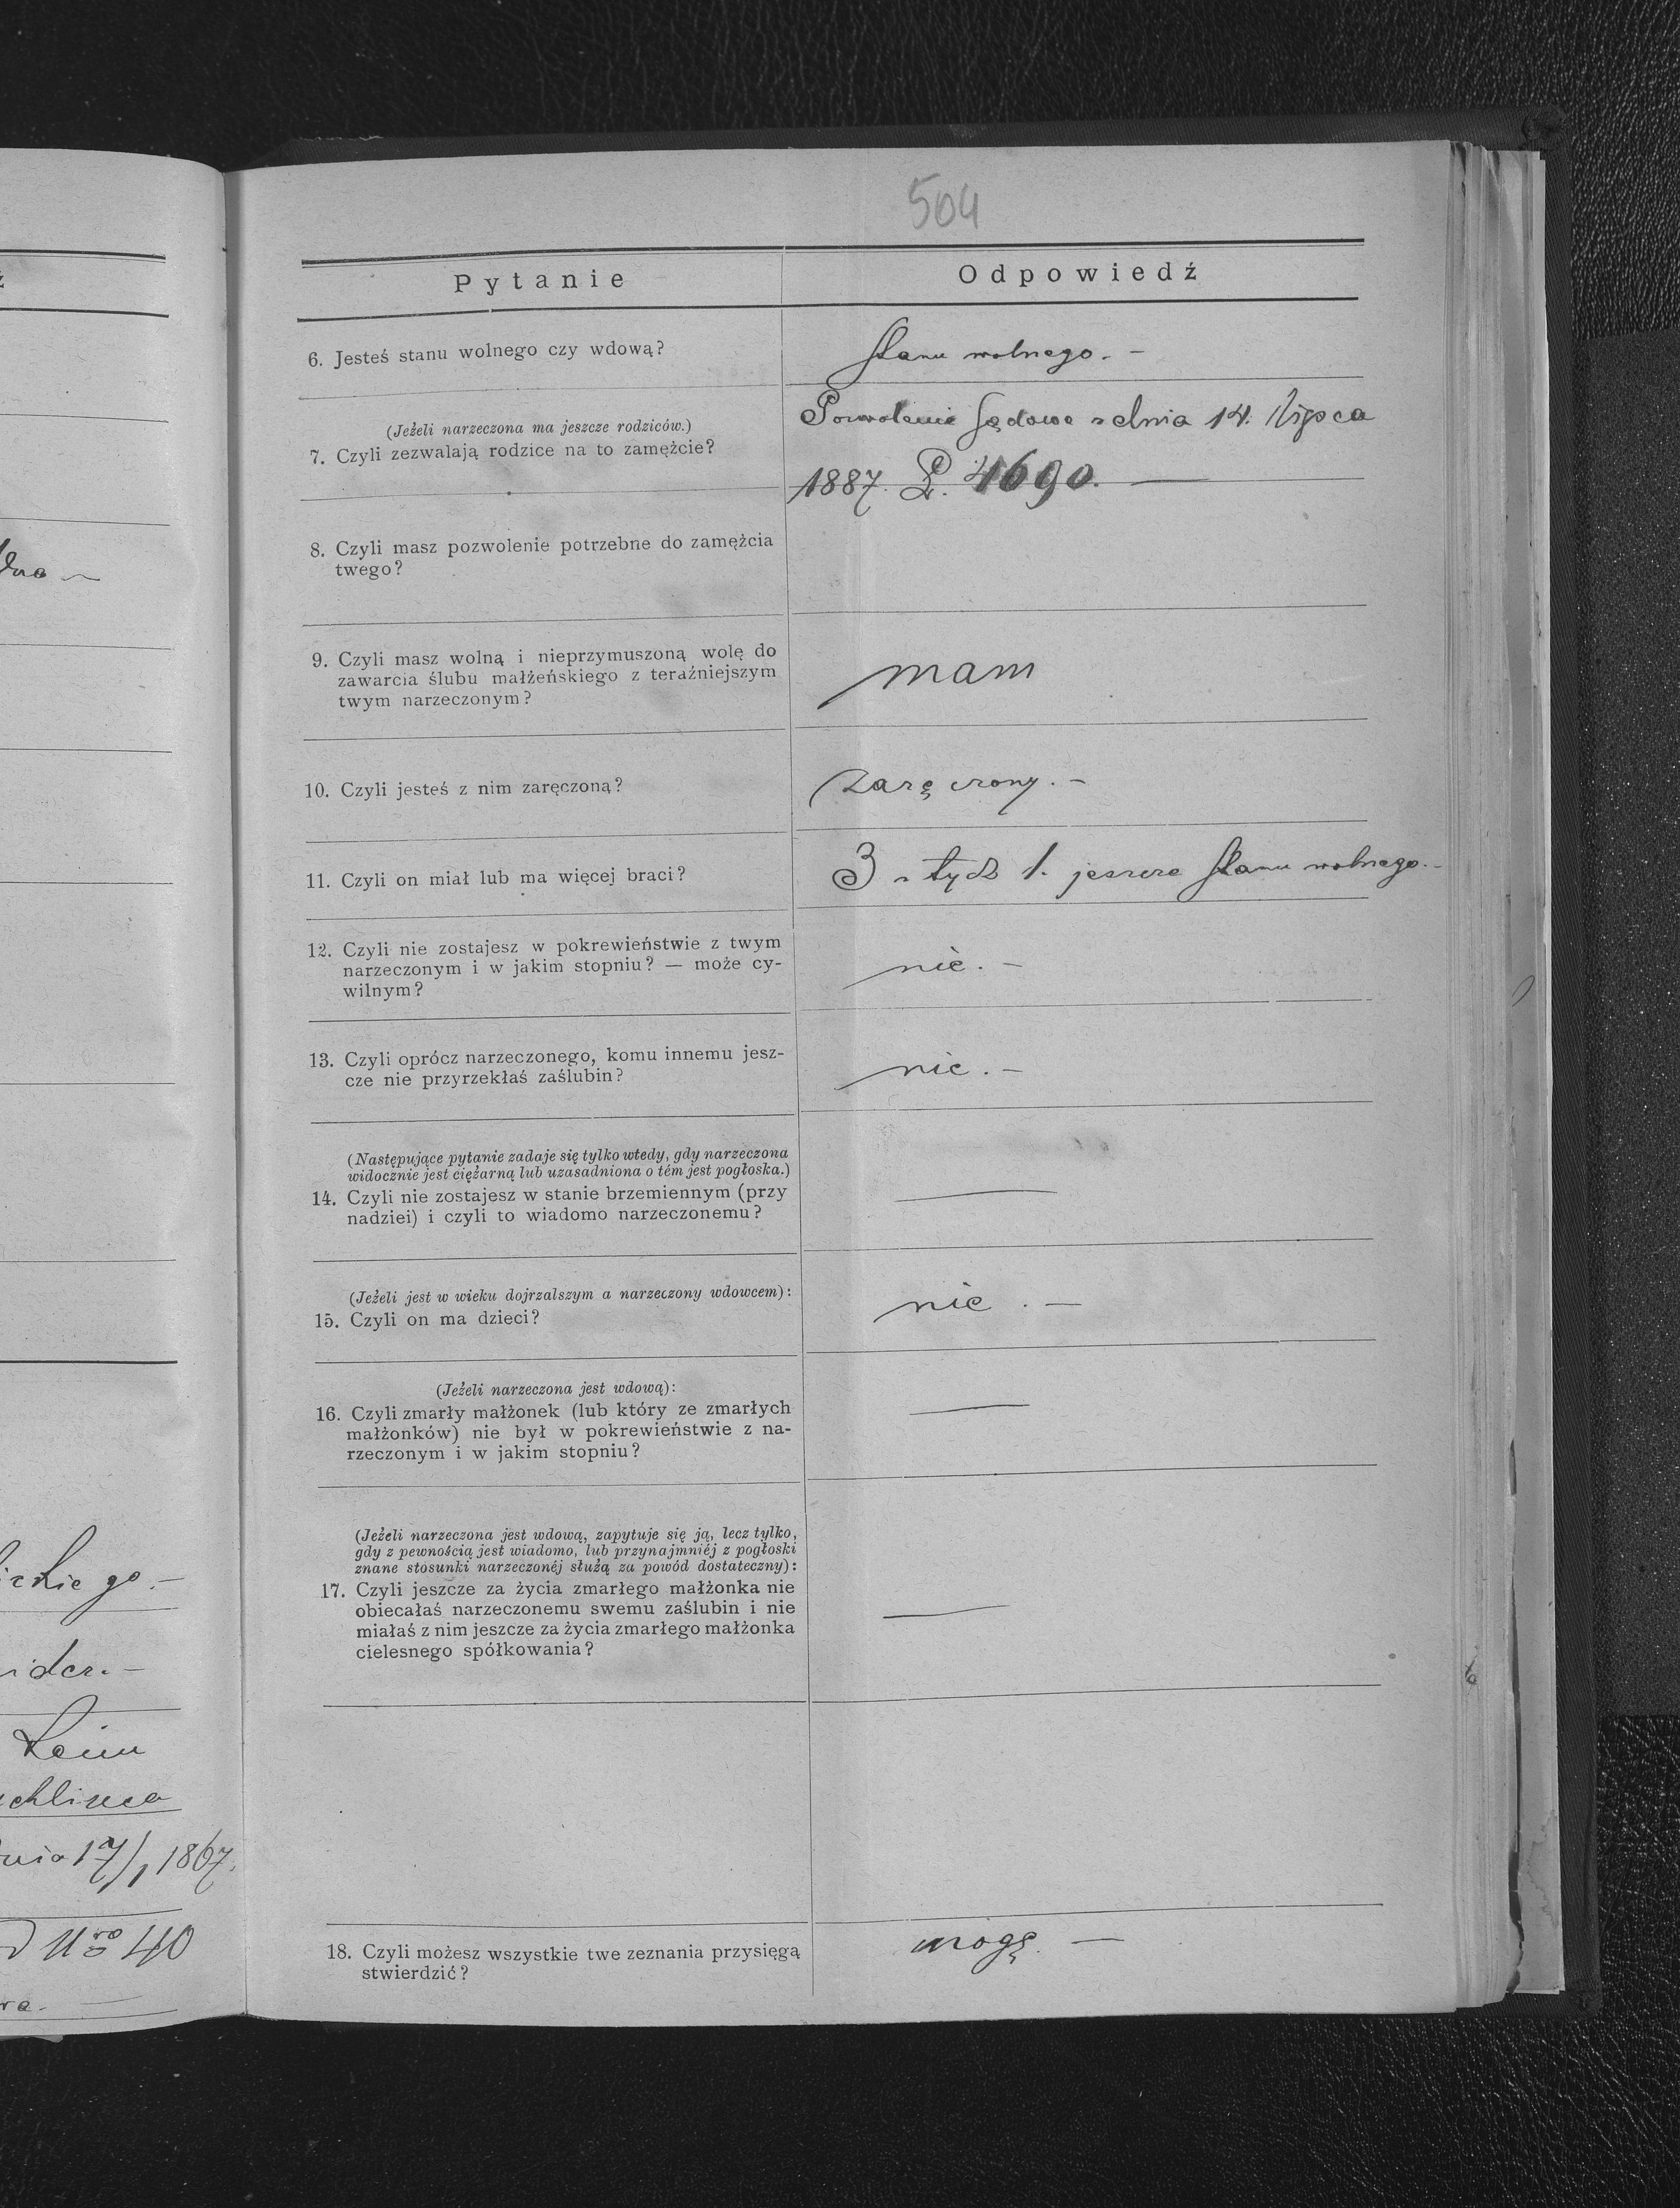 504
Pytanie
Odpowiedź
6. Jesteś stanu wolnego czy wdową?
stanu wolnego. –
(Jeżeli narzeczona ma jeszcze rodziców.)
7. Czyli zezwalają rodzice na to zamężcie?
Pozwolenie sądowe z dnia 14. Lipca
1887. L. 4690. —
8. Czyli masz pozwolenie potrzebne do zamężcia
twego?
9. Czyli masz wolną i nieprzymuszoną wolę do
zawarcia ślubu małżeńskiego z teraźniejszym
twym narzeczonym?
mam
10. Czyli jesteś z nim zaręczoną?
zaręczony. –
11. Czyli on miał lub ma więcej braci?
3 z tych 1. jeszcze stanu wolnego. –
12. Czyli nie zostajesz w pokrewieństwie z twym
narzeczonym i w jakim stopniu? — może cy-
wilnym?
nie. –
13. Czyli oprócz narzeczonego, komu innemu jesz-
cze nie przyrzekłaś zaślubin?
nie. –
(Następujące pytanie zadaje się tylko wtedy, gdy narzeczona
widocznie jest ciężarną lub uzasadniona o tém jest pogłoska.)
14. Czyli nie zostajesz w stanie brzemiennym (przy
nadziei) i czyli to wiadomo narzeczonemu?
—
(Jeżeli jest w wieku dojrzalszym a narzeczony wdowcem):
15. Czyli on ma dzieci?
nie. —
(Jeżeli narzeczona jest wdową):
16. Czyli zmarły małżonek (lub który ze zmarłych
małżonków) nie był w pokrewieństwie z na-
rzeczonym i w jakim stopniu?
—
(Jeżeli narzeczona jest wdową, zapytuje się ją, lecz tylko,
gdy z pewnością jest wiadomo, lub przynajmniéj z pogłoski
znane stosunki narzeczonéj służą za powód dostateczny):
17. Czyli jeszcze za życia zmarłego małżonka nie
obiecałaś narzeczonemu swemu zaślubin i nie
miałaś z nim jeszcze za życia zmarłego małżonka
cielesnego spółkowania?
—
18. Czyli możesz wszystkie twe zeznania przysięgą
stwierdzić?
mogę. —
17/1 1867.
Nro 40